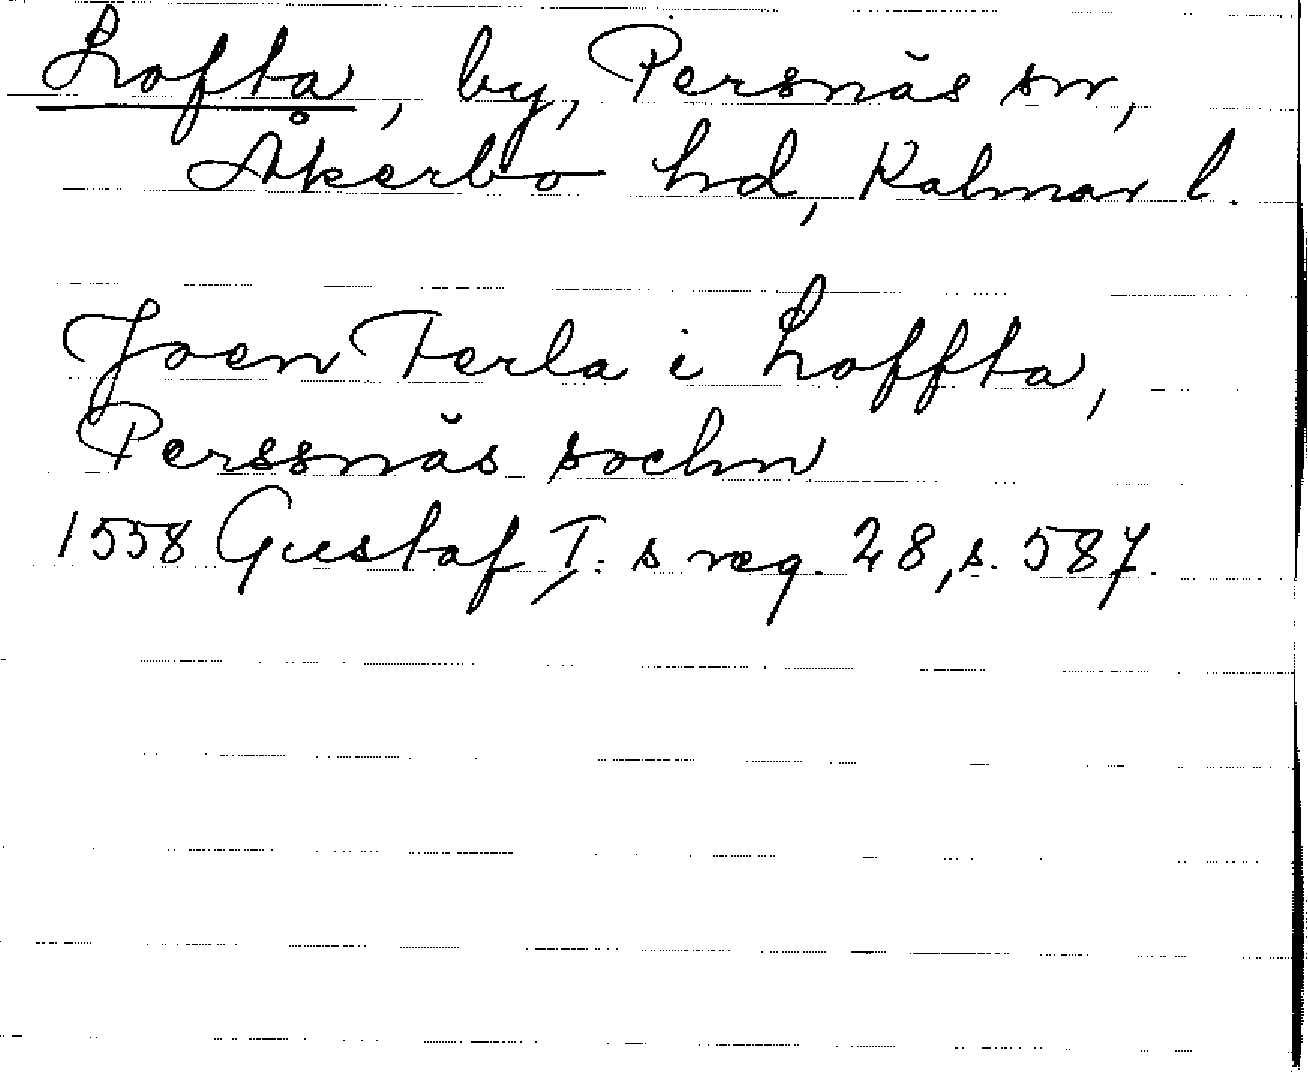 Lofta, by, Persnäs sn,
Åkerbo hd, Kalmar l.
Joen Ferla i Loffta,
Perssnäs sochn
1558 Gustaf I: s reg. 28, s. 587.